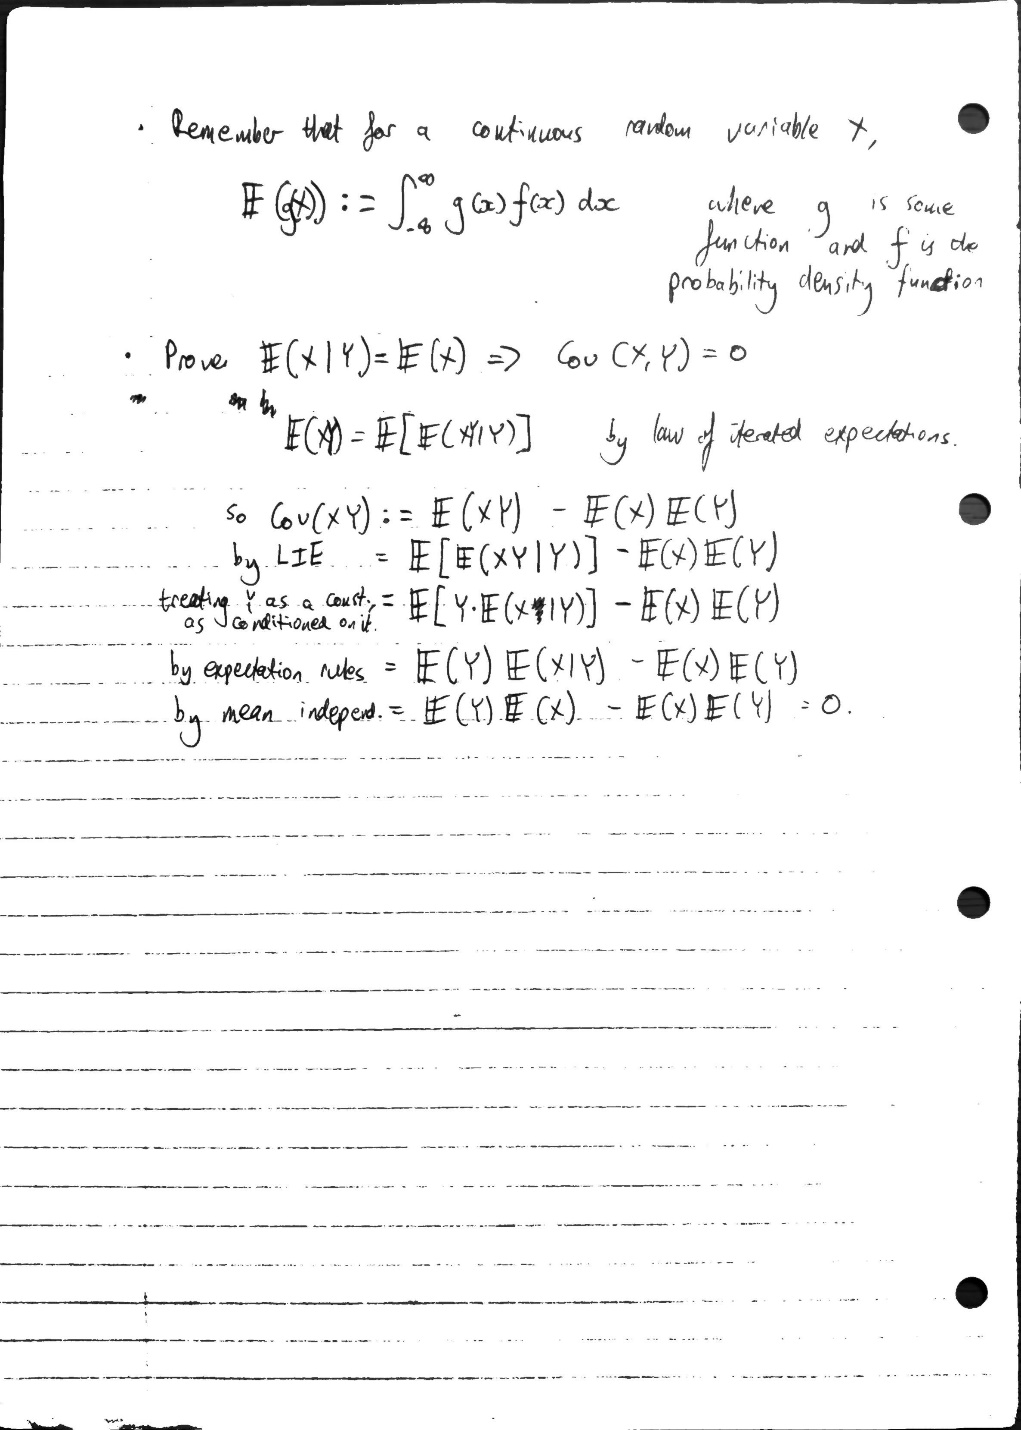 · Remember that for a continuous random variable X,
𝔼(g(X)) := ∫_{-∞}^{∞} g(x) f(x) dx where g is some
function and f is the
probability density function
· Prove 𝔼(X|Y) = 𝔼(X) => Cov(X, Y) = 0
𝔼(XY) = 𝔼[𝔼(XY|Y)] by law of iterated expectations.
so Cov(XY) := 𝔼(XY) - 𝔼(X) 𝔼(Y)
by LIE = 𝔼[𝔼(XY|Y)] - 𝔼(X) 𝔼(Y)
treating Y as a const., = 𝔼[Y·𝔼(X|Y)] - 𝔼(X) 𝔼(Y)
as conditioned on it.
by expectation rules = 𝔼(Y) 𝔼(X|Y) - 𝔼(X) 𝔼(Y)
by mean independ. = 𝔼(Y) 𝔼(X) - 𝔼(X) 𝔼(Y) = 0.